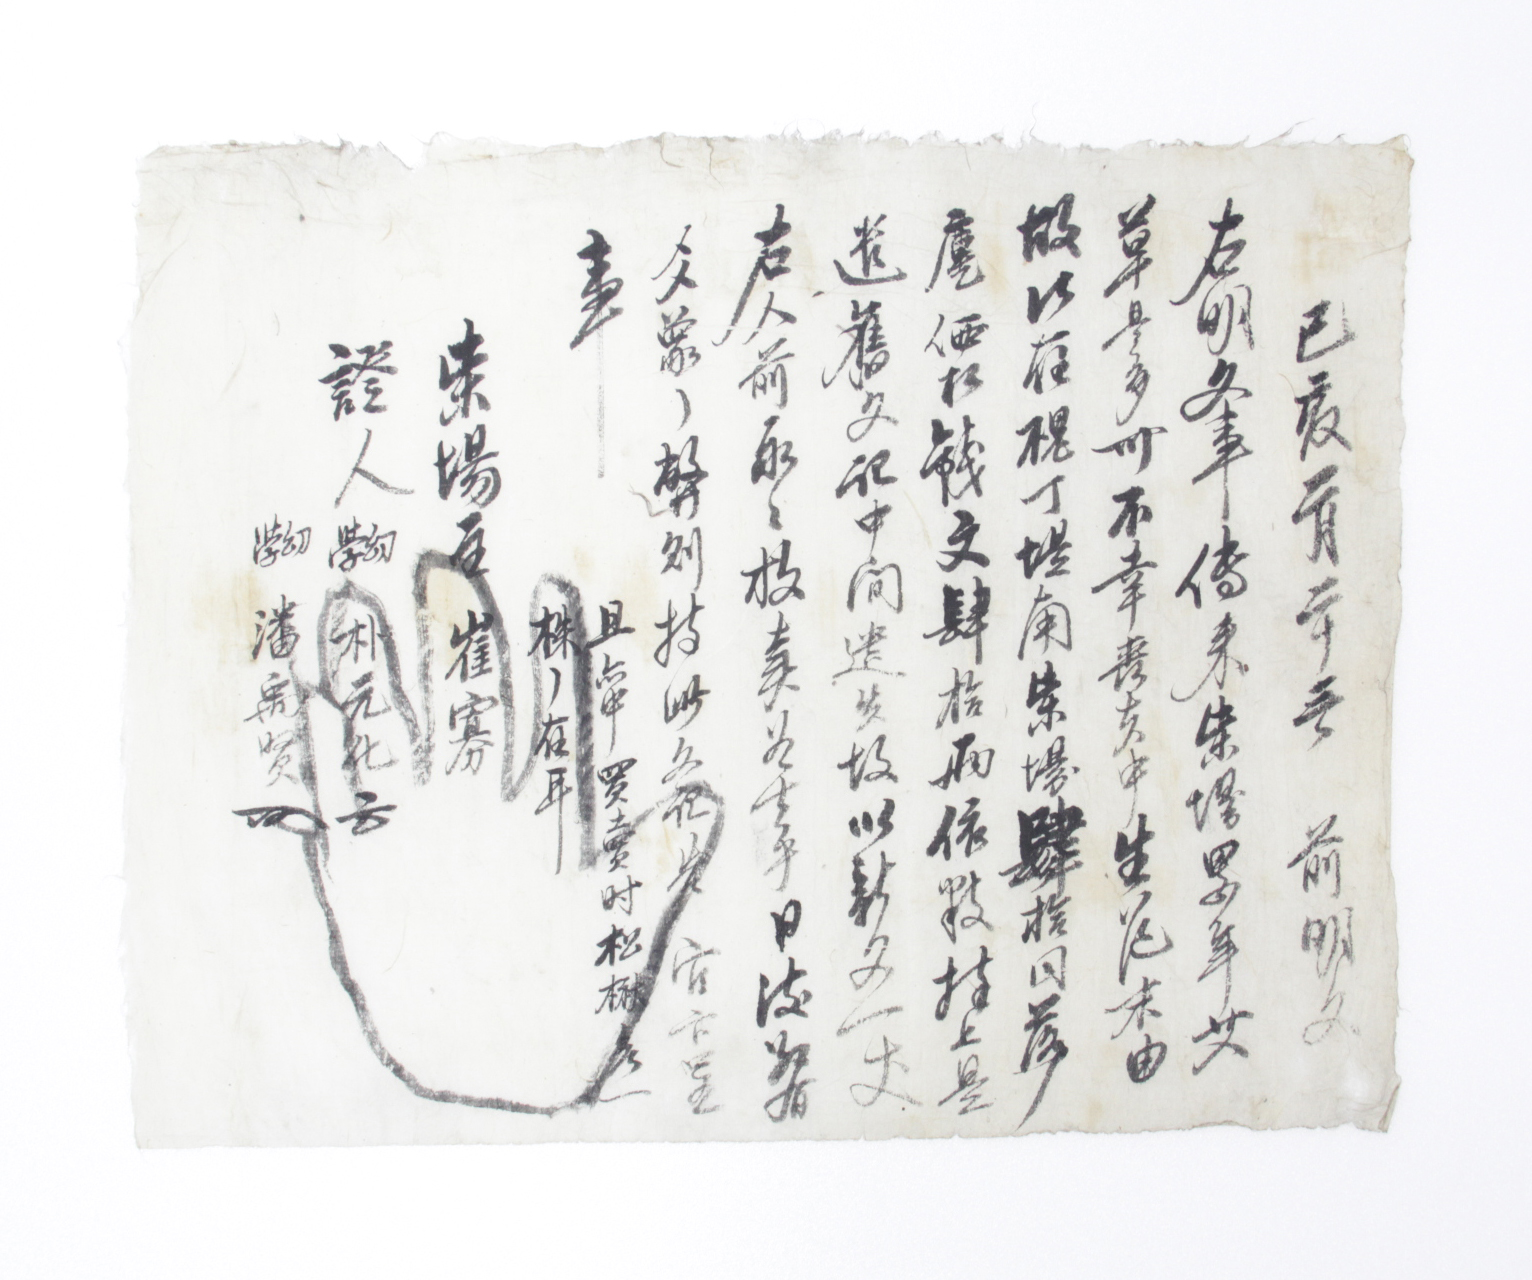 己亥二月二十 前明文
右明文事傳來柴場累年艾
草是多可不幸喪夫中生涯末由
故伏在槐丁堤角柴場肆拾同落
庫価折錢文肆拾兩依數捧上是
遣舊文記中間遺失故以新文一丈
右人前永々放賣爲去乎日後若有
文蒙之弊則持此文記告官卞呈
事
且亦中買賣時松楸
株々在耳
柴場主 崔寡
證人 幼學 朴元化
幼學 潘禹賢